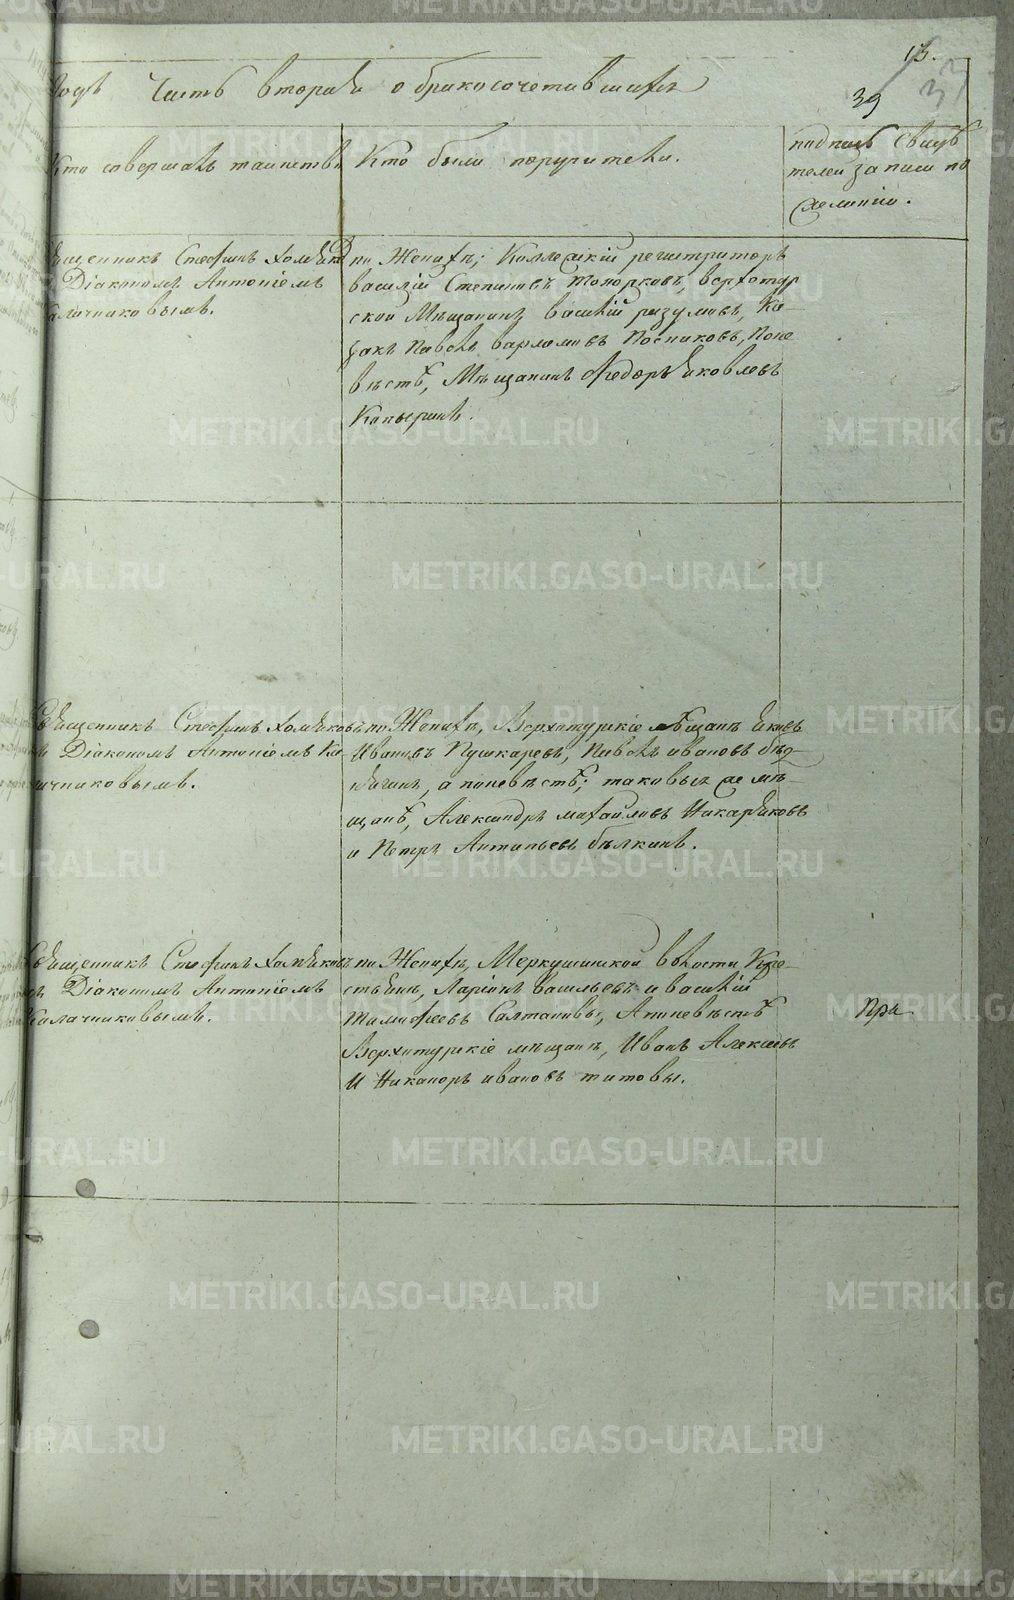 13.
39
годъ Часть вторая о бракосочетавшихся
Кто совершалъ таинство
Кто были поручители.
подпись свидѣ
телей записи по
желанію.
Священникъ Стефанъ Хомяковъ
Діакономъ Антоніемъ
Калачниковымъ.
по Женихѣ; Коллежскій регистраторъ
василій Степановъ Топорковъ, верхотур
ской Мѣщанинъ василій разумовъ, Ка-
закъ Павелъ варламовъ Посниковъ, Поне
вѣстѣ, Мѣщанинъ Федоръ Яковлевъ
Копыринъ.
Священникъ Стефанъ Хомяковъ
и Діакономъ Антоніемъ Ка-
лачниковымъ.
по Женихѣ, Верхотурскіе мѣщанѣ Яковъ
Ивановъ Пушкаревъ, Павелъ ивановъ
а поневѣстѣ; таковыя же мѣ
щанѣ, Александръ михайловъ
и Петръ Антипьевъ бѣлкинъ.
Священникъ Стефанъ Хомяковъ
съ Діакономъ Антоніемъ
Калачниковымъ.
по Женихѣ, Меркушинской волости Кре-
стьянѣ, Ларіонъ васильевъ и василій
Тимофеевъ Салтановы, Апоневѣстѣ
Верхотурскіе мѣщанѣ, Иванъ Алексѣевъ
И Никаноръ ивановъ титовы.
При
METRIKI.GASO-URAL.RU